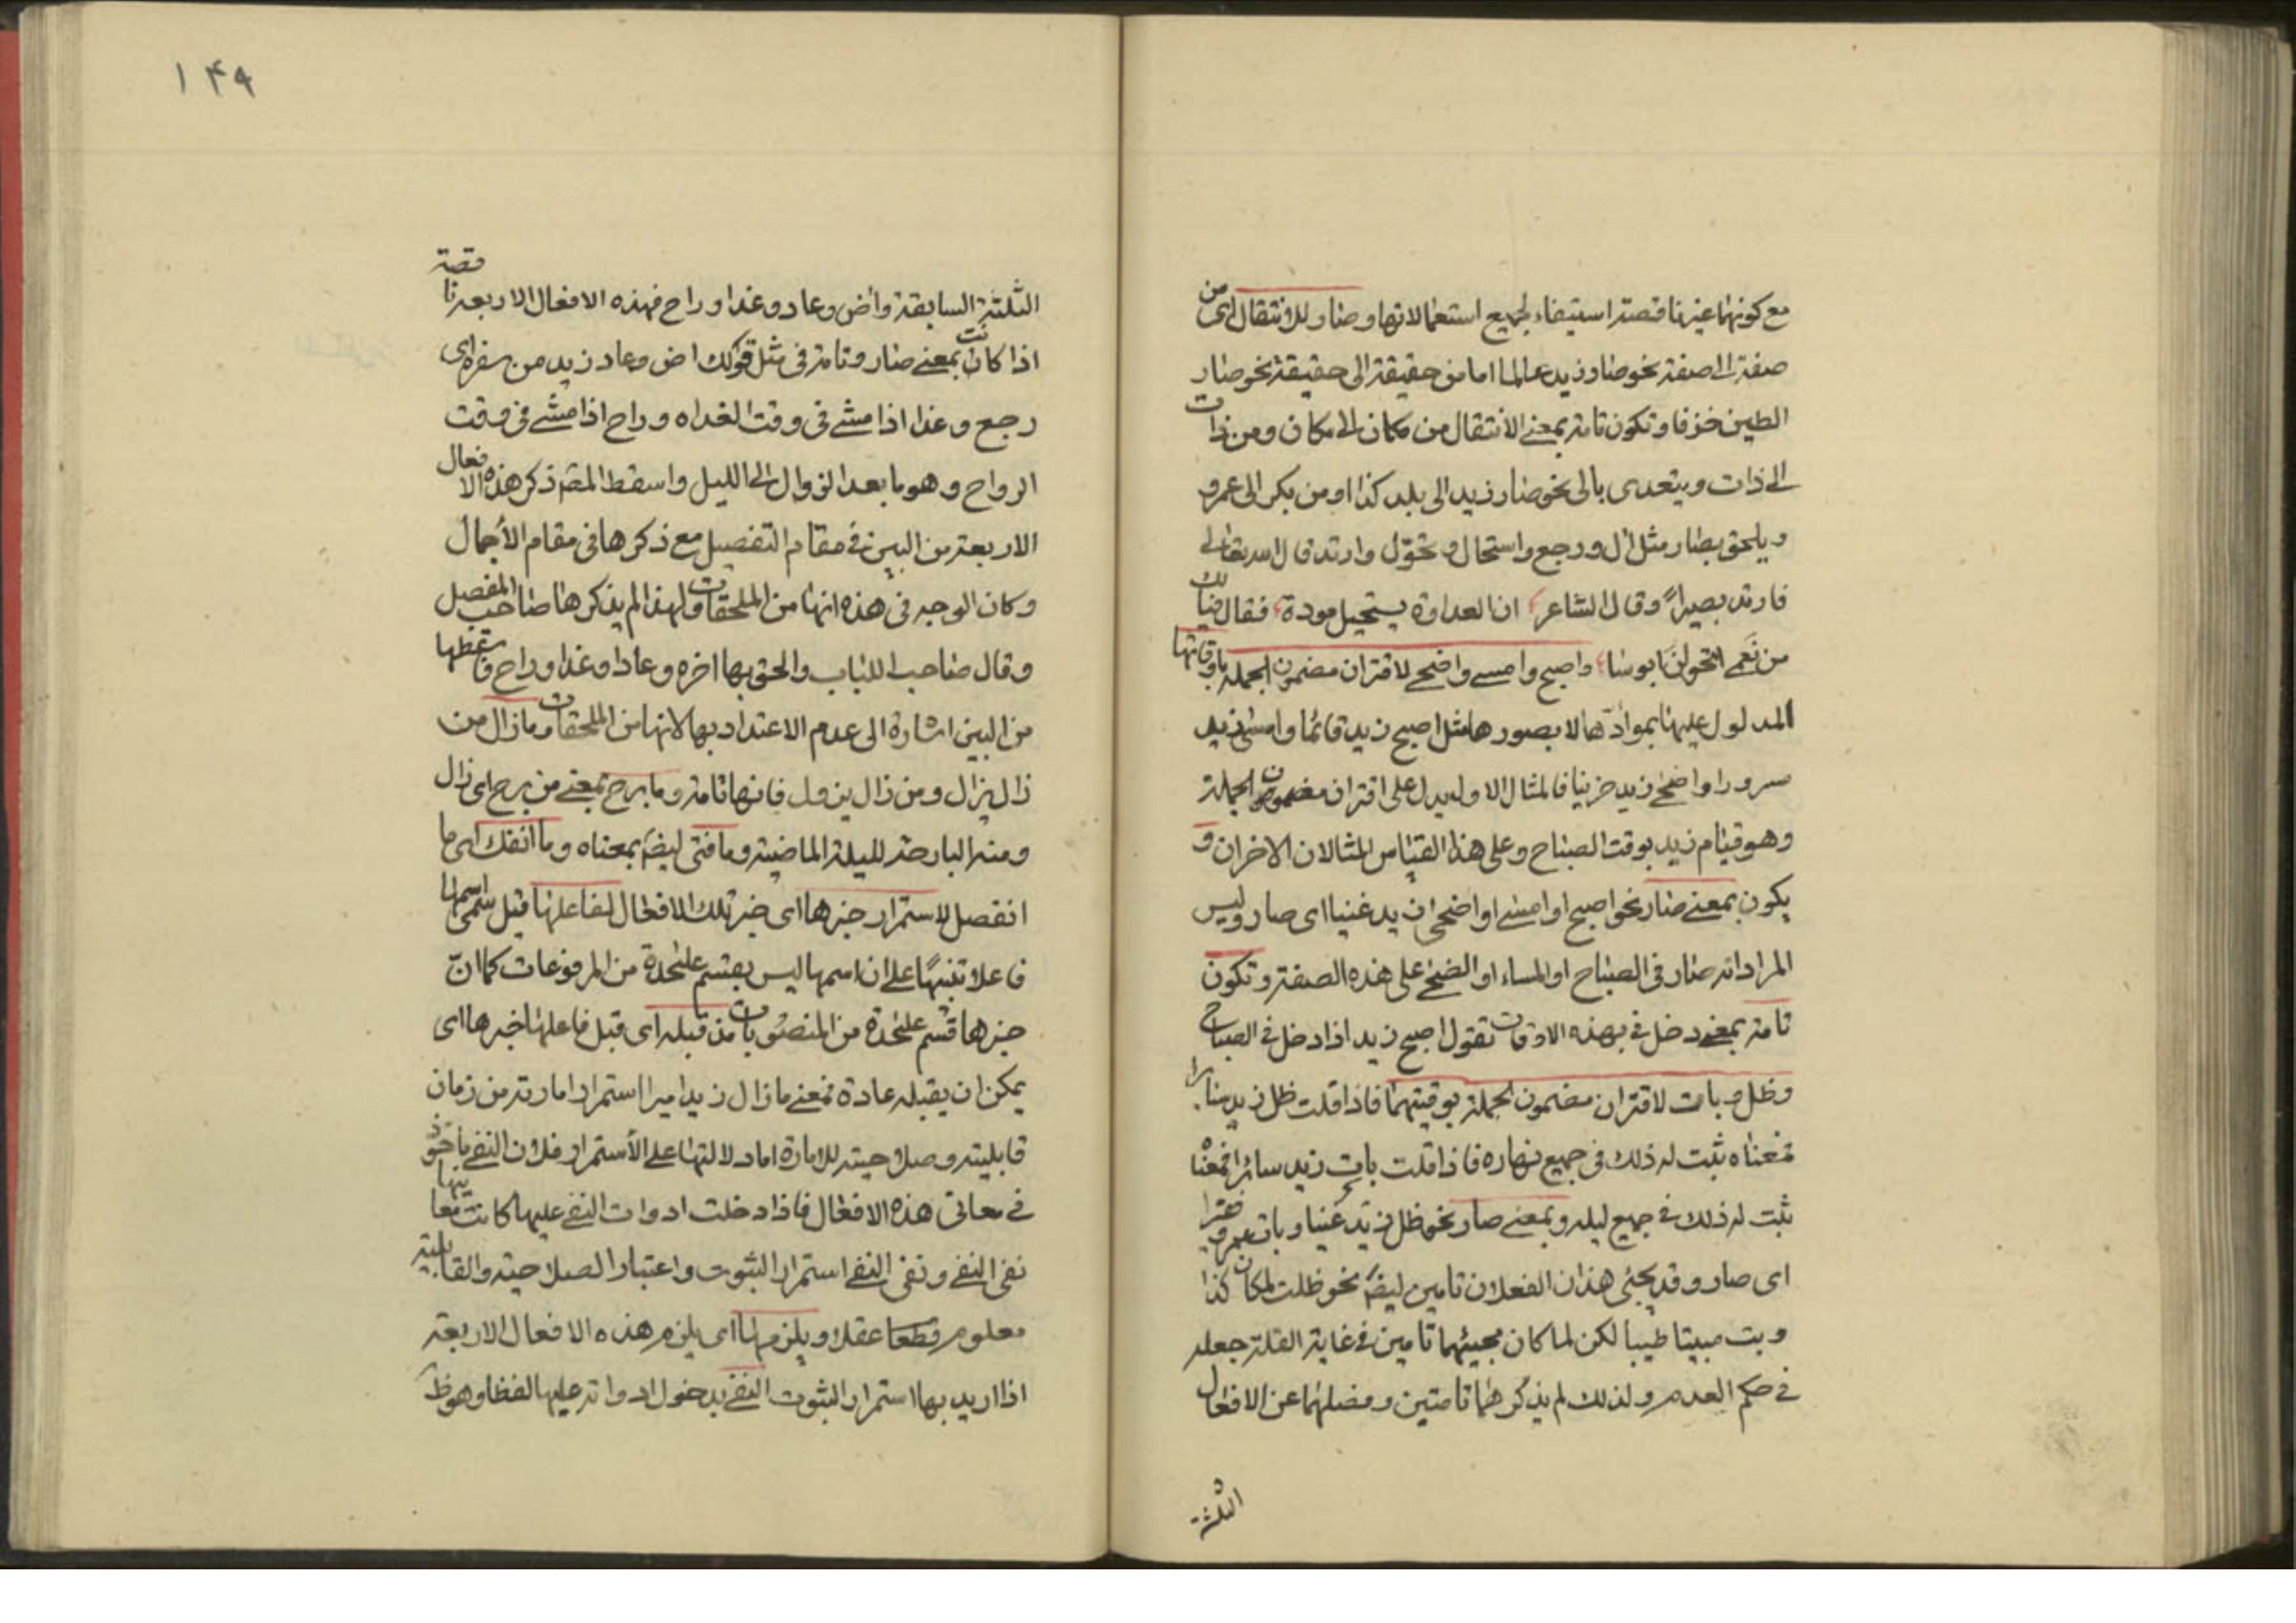 مع كونهما غير ناقصة استيفاء لجميع استعمالاتها وصار للانتقال اى من
صفة الى صفة نحو صار زيد عالما اما من حقيقة الى حقيقة نحو صار
الطين خزفا وتكون تامة بمعنى الانتقال من مكان الى مكان ومن ذات
الى ذات ويتعدى بالى نحو صار زيد الى بلد كذا او من بكر الى عمرو
ويلحق بصار مثل ال ورجع واستحال وتحوّل وارتد قال الله تعالى
فارتد بصيراً وقال الشاعر ان العداوة يستحيل مودة فقال فيالك
من نَعمى تحولن ابوسا واصبح وامسى واضحى لاقتران مضمون الجملة باوقاتها
المدلول عليها بموادّها لا بصورها مثل اصبح زيد قائما وامسى زيد
سرورا واضحى زيد حزينا فالمثال الاول يدل على اقتران مضمون الجملة
وهو قيام زيد بوقت الصباح وعلى هذا القياس المثالان الاخران و
يكون بمعنى صار نحو اصبح او امسى او اضحى زيد غنيا اى صار وليس
المراد انه صار فى الصباح او المساء او الضحى على هذه الصفة وتكون
تامة بمعنى دخل فى بهذه الاوقات تقول اصبح زيد اذا دخل فى الصباح
وظل وبات لاقتران مضمون الجملة بوقتيهما فاذا قلت ظل زيد سائرا
فمعناه ثبت له ذلك فى جميع نهاره فاذا قلت بات زيد سائرا فمعناه
ثبت له ذلك فى جميع ليله وبمعنى صار نحو ظل زيد غنيا وبات عمرو فقيرا
اى صار وقد يجئ هذان الفعلان تامين ليضً نحو ظلت لمكان كذا
وبت مبيتا طيبا لكن لما كان مجيئهما تامين فى غاية القلة جعله
فى حكم العدم ولذلك لم يذكرهما تامتين وفصلهما عن الافعال
الثلثة
١٤٩
الثلثة السابقة وآض وعاد وغدا وراح فهذه الافعال الاربعة ناقصة
اذا كانت بمعنى صار وتامة فى مثل قولك اض وعاد زيد من سفره اى
رجع وغدا اذا مشى فى وقت الغداه وراح اذا مشى فى وقت
الرواح وهو ما بعد الزوال الى الليل واسقط المصّ ذكر هذه الافعال
الاربعة من البين فى مقام التفصيل مع ذكرها فى مقام الاجمال
وكان الوجه فى هذه انها من الملحقات ولهذا لم يذكرها صاحب المفصل
وقال صاحب اللباب والحق بها اخره وعاد وغدا وراح فاسقطها
من البين اشارة الى عدم الاعتداد بها لانها من الملحقات وما زال من
زال يزال ومن زال يزول فانها تامة وما برح بمعنى من برح اى زال
ومنه البارحة لليلة الماضية وما فتى ليضً بمعناه وما انفك اى ما
انفصل لاستمرار خبرها اى خبر تلك الافعال لفاعلها قيل سمى اسمها
فاعلا تنبيهًا على ان اسمها ليس بقسم علحدة من المرفوعات كما انّ
خبرها قسم علحدة من المنصوبات مذ قبله اى قبل فاعلها خبرها اى
يمكن ان يقبله عادة فمعنى ما زال زيد اميرا استمرار امارته من زمان
قابليته وصلاحيته للامارة اما دلالتها على الاستمرار فلان النفى ماخوذ
فى معانى هذه الافعال فاذا دخلت ادوات النفى عليها كانت معانيها
نفى النفى ونفى النفى استمرار الثبوت واعتبار الصلاحية والقابلية
معلوم قطعا عقلا ويلزمها اى يلزم هذه الافعال الاربعة
اذا اريد بها استمرار الثبوت النفى بدخول ادواته عليها لفظا وهو ظ